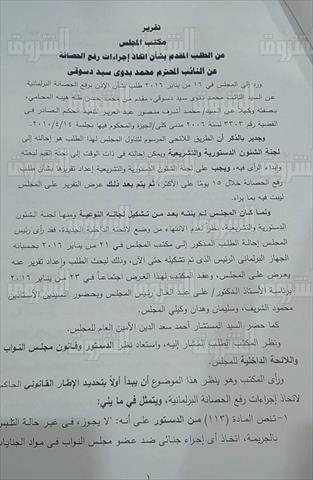 تقرير
مكتب المجلس
عن الطلب المقدم بشأن اتخاذ إجراءات رفع الحصانة
عن النائب المحترم محمد بدوى سيد دسوقى
ورد إلى المجلس في ١٦ من يناير ٢٠١٦ طلب بشأن الإذن برفع الحصانة البرلمانية
عن السيد النائب محمد بدوى سيد دسوقى، مقدم من محمد حسن طه هيبه المحامى،
بصفته وكيلا عن السيد/ محمد أشرف منصور عبد العزيز لتنفيذ الحكم الصادر فى
القضية رقم ٣٣٠٣ لسنة ٢٠٠٦ مدنى كلى/الجيزة والمحكوم فيها بجلسة ٢٠١٠/٤/١٤.
وجدير بالذكر أن الطريق اللائحى المرسوم لتناول المجلس لهذا الطلب هو إحالته إلى
لجنة الشئون الدستورية والتشريعية ويمكن إحالته فى ذات الوقت إلى لجنة القيم لبحثه
وإبداء الرأى فيه، ويجب على لجنة الشئون الدستورية والتشريعية إعداد تقريرها بشأن طلب
رفع الحصانة خلال ١٥ يومًا على الأكثر، ثم يتم بعد ذلك عرض التقرير على المجلس
ليبت فيه بما يراه.
ولما كان المجلس لم ينته بعد من تشكيل لجانه النوعية ومنها لجنة الشئون
الدستورية والتشريعية، نظراً لعدم الانتهاء من وضع لائحته الداخلية الجديدة، فقد رأى رئيس
المجلس إحالة الطلب المذكور إلى مكتب المجلس في ٢١ من يناير ٢٠١٦ بحسبانه
الجهاز البرلمانى الرئيس الذى تم تشكيله حتى الآن، وذلك لبحث الطلب وإعداد تقرير عنه
يعرض على المجلس، وعقد المكتب لهذا الغرض اجتماعاً فى ٢٣ من يناير ٢٠١٦
برئاسة الأستاذ الدكتور/ على عبد العال رئيس المجلس وبحضور السيدين الأستاذين
محمود الشريف، وسليمان وهدان وكيلى المجلس.
كما حضر السيد المستشار أحمد سعد الدين الأمين العام للمجلس.
ونظر المكتب الطلب المشار إليه، واستعاد نظر الدستور وقانون مجلس النواب
واللائحة الداخلية للمجلس.
ورأى المكتب وهو ينظر هذا الموضوع أن يبدأ أولاً بتحديد الإطار القانونى الحاكم
لاتخاذ إجراءات رفع الحصانة البرلمانية، ويتمثل في ما يلي:
١- تنص المادة (١١٣) من الدستور على أنه: "لا يجوز، فى غير حالة التلبس
بالجريمة، اتخاذ أى إجراء جنائى ضد عضو مجلس النواب فى مواد الجنايات
١
الشروق